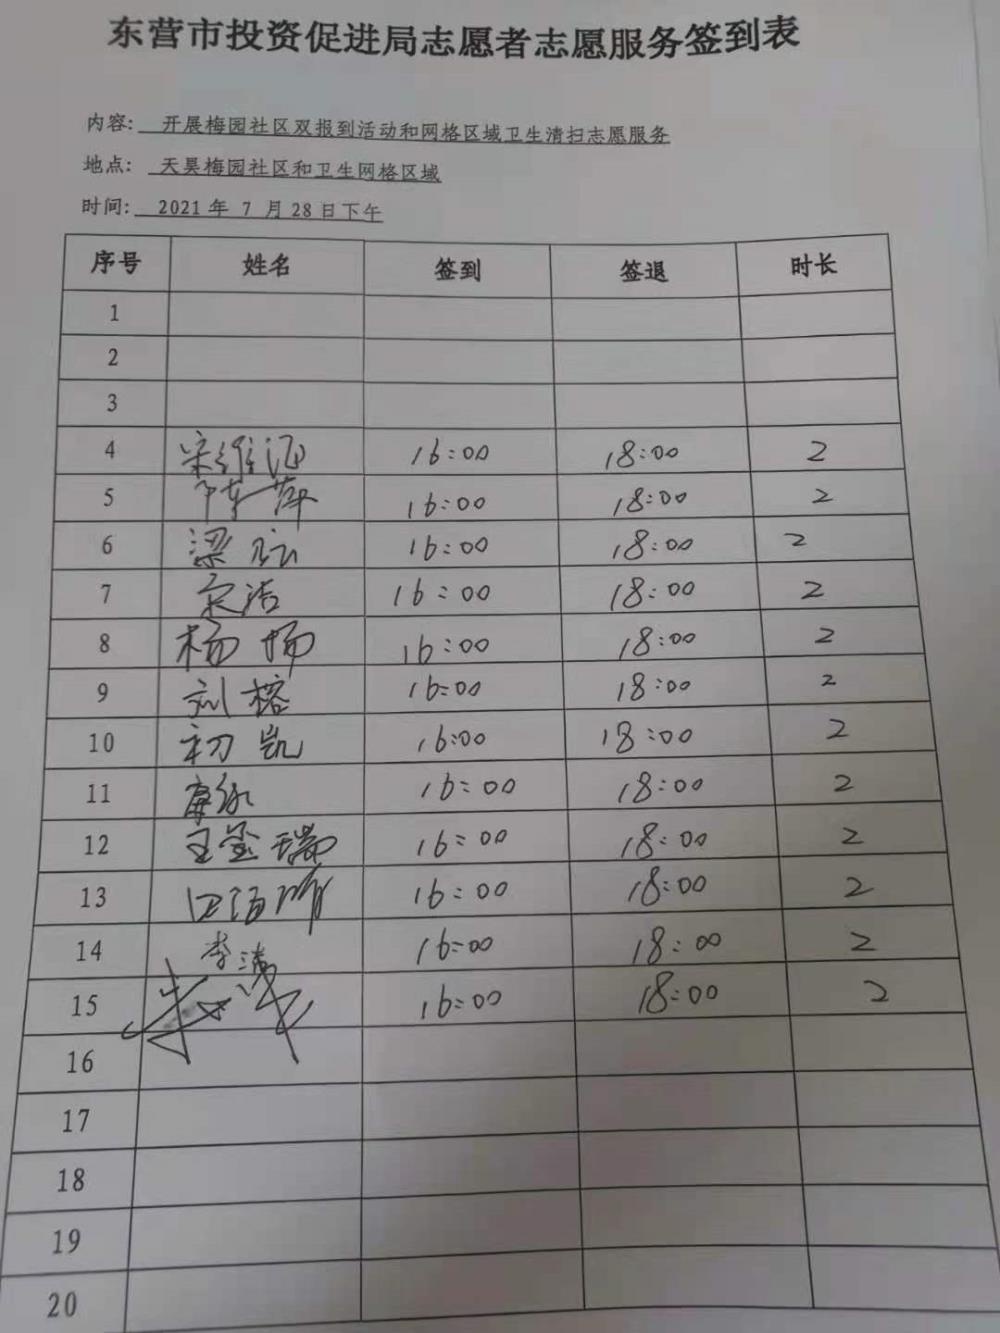 东营市投资促进局志愿者志愿服务签到表
内容: 开展梅园社区双报到活动和网格区域卫生清扫志愿服务
地点: 天昊梅园社区和卫生网格区域
时间: 2021年 7 月 28日下午
序号 姓名 签到 签退 时长
1
2
3
4 宋维 16:00 18:00 2
5 陈萍 16:00 18:00 2
6 梁 16:00 18:00 2
7 宋洁 16:00 18:00 2
8 杨扬 16:00 18:00 2
9 刘榕 16:00 18:00 2
10 初凯 16:00 18:00 2
11 16:00 18:00 2
12 王玺瑞 16:00 18:00 2
13 16:00 18:00 2
14 李涛 16:00 18:00 2
15 16:00 18:00 2
16
17
18
19
20